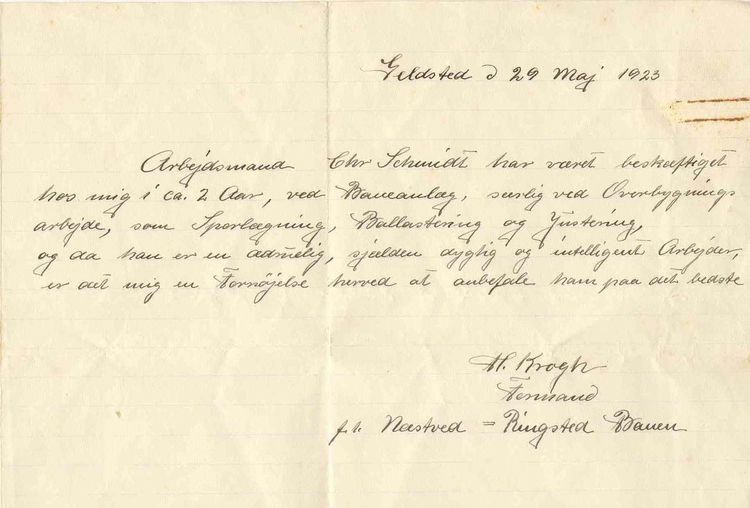 Geldsted d 29 Maj 1923
Arbejdsmand Chr Schmidt har været beskæftiget
hos mig i ca. 2 Aar, ved Baneanlæg, særlig ved Overbygnings
arbejde, som Sporlægning, Ballastering og Justering,
og da han er en ædruelig, sjælden dygtig og intelligent Arbejder,
er det mig en Fornøjelse herved at anbefale ham paa det bedste
M. Krogh
Formand
p.t. Næstved = Ringsted Banen